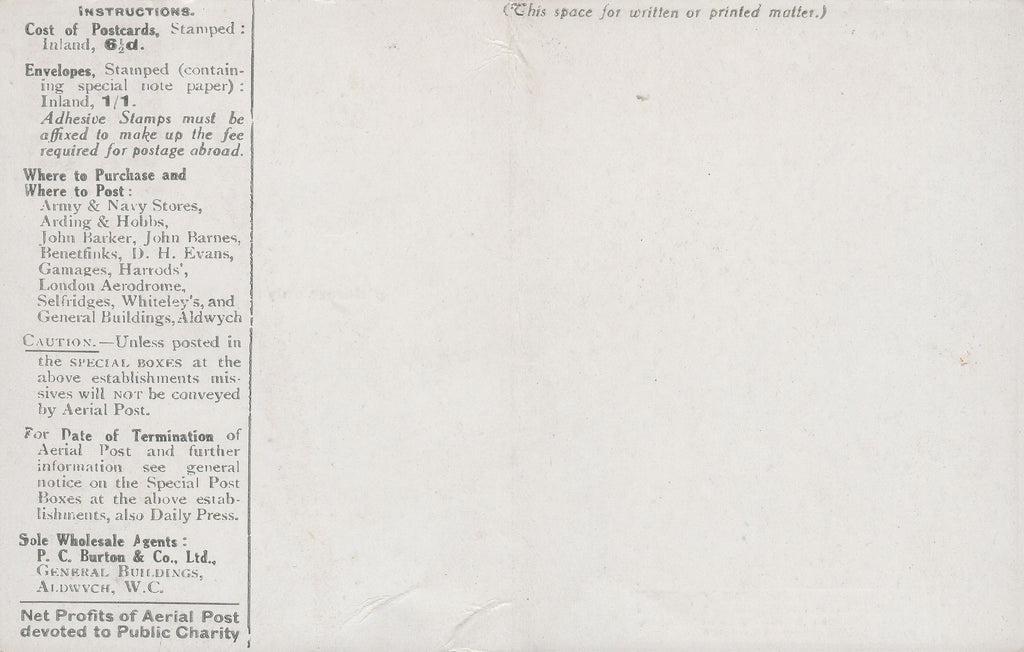 INSTRUCTIONS.
Cost of Postcards, Stamped :
Inland, 6½d.
Envelopes, Stamped (contain-
ing special note paper) :
Inland, 1/1.
Adhesive Stamps must be
affixed to make up the fee
required for postage abroad.
Where to Purchase and
Where to Post :
Army & Navy Stores,
Arding & Hobbs,
John Barker, John Barnes,
Benetfinks, D. H. Evans,
Gamages, Harrods',
London Aerodrome,
Selfridges, Whiteley's, and
General Buildings, Aldwych
CAUTION.—Unless posted in
the SPECIAL BOXES at the
above establishments mis-
sives will NOT be conveyed
by Aerial Post.
For Date of Termination of
Aerial Post and further
information see general
notice on the Special Post
Boxes at the above estab-
lishments, also Daily Press.
Sole Wholesale Agents :
P. C. Burton & Co., Ltd.,
GENERAL BUILDINGS,
ALDWYCH, W.C.
Net Profits of Aerial Post
devoted to Public Charity
(This space for written or printed matter.)